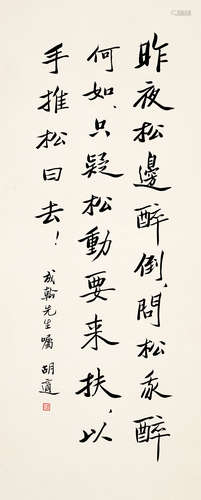 昨夜松邊醉倒，問松我醉
何如，只疑松動要来扶，以
手推松曰去！
成翰先生囑 胡適